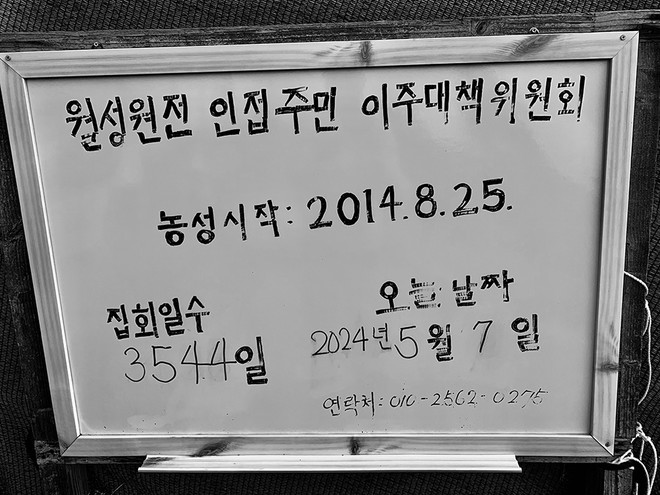 월성원전 인접주민 이주대책위원회
농성시작: 2014.8.25.
집회일수
3544일
오늘 날짜
2024년 5월 7일
연락처: 010-2562-0275